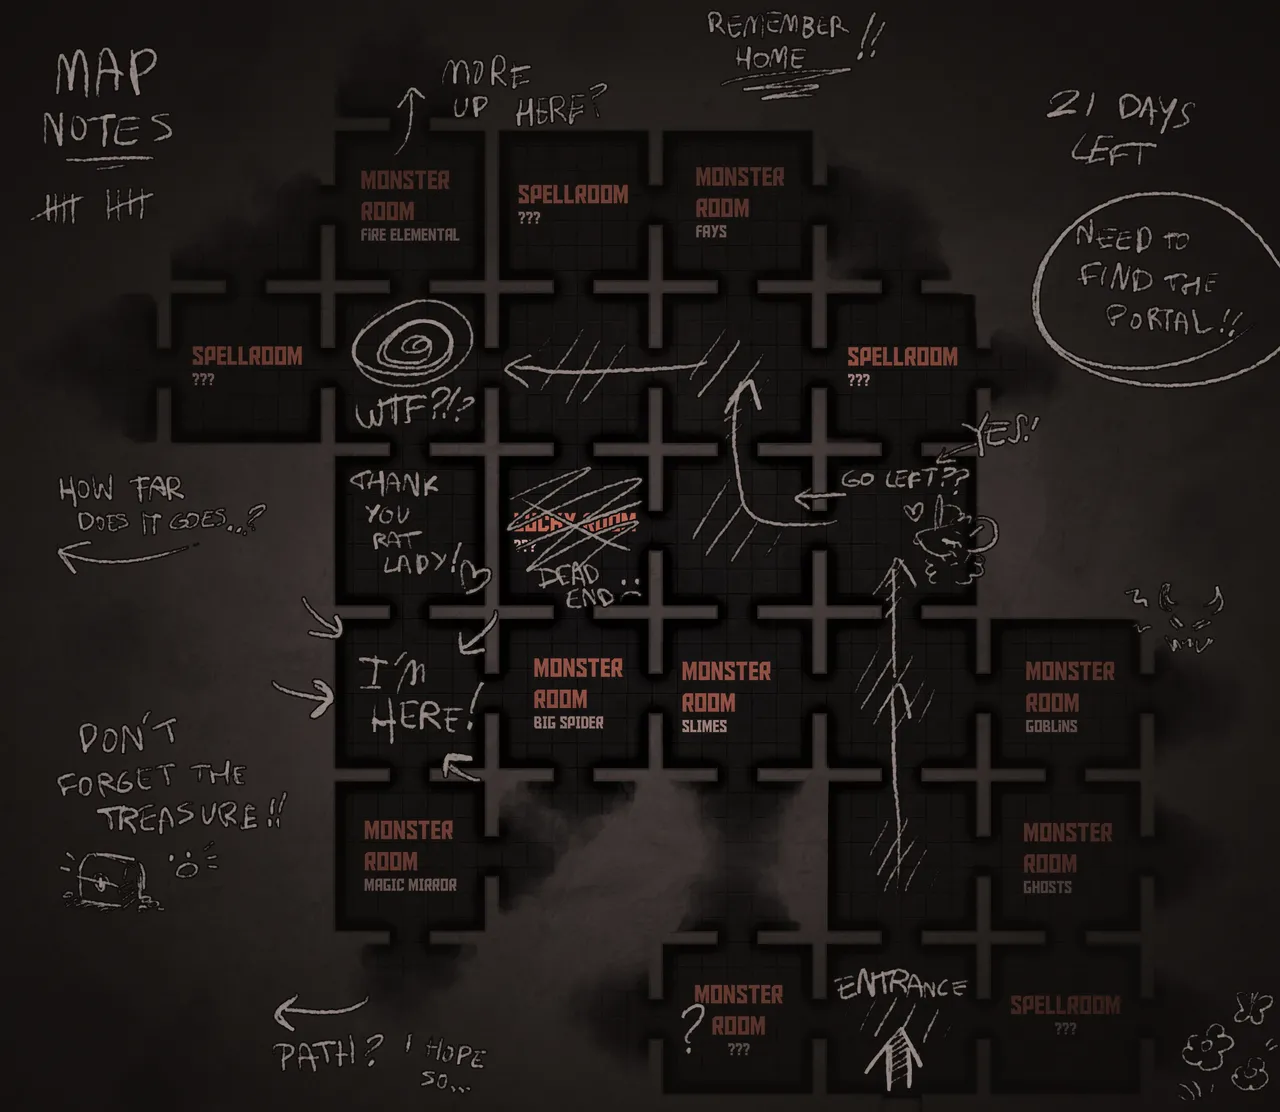 MAP
NOTES
MORE
UP HERE?
REMEMBER
HOME !!
21 DAYS
LEFT
NEED TO
FIND THE
PORTAL!!
MONSTER
ROOM
FIRE ELEMENTAL
SPELLROOM
???
MONSTER
ROOM
FAYS
SPELLROOM
???
WTF?!?
SPELLROOM
???
YES!
GO LEFT??
HOW FAR
DOES IT GOES...?
THANK
YOU
RAT
LADY!
LUCKY ROOM
???
DEAD
END :(
I'M
HERE!
MONSTER
ROOM
BIG SPIDER
MONSTER
ROOM
SLIMES
MONSTER
ROOM
GOBLINS
DON'T
FORGET THE
TREASURE!!
MONSTER
ROOM
MAGIC MIRROR
MONSTER
ROOM
GHOSTS
ENTRANCE
? MONSTER
ROOM
???
SPELLROOM
???
PATH? I HOPE
SO...